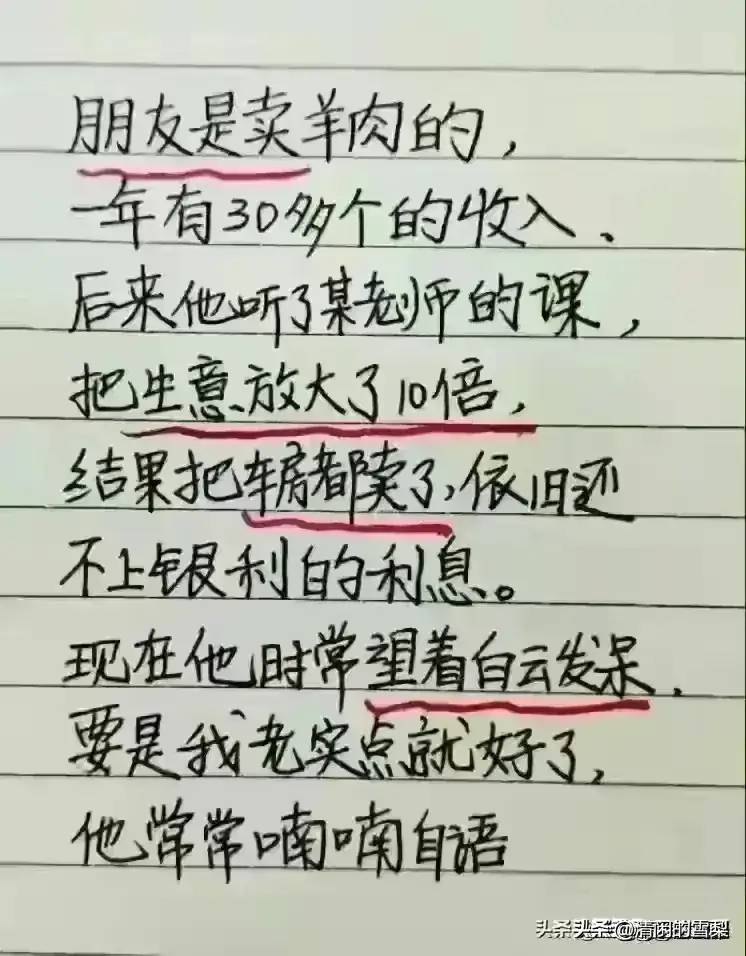 朋友是卖羊肉的，
一年有30多个的收入、
后来他听了某老师的课，
把生意放大了10倍，
结果把车房都卖了，依旧还
不上银利的利息。
现在他时常望着白云发呆，
要是我老实点就好了，
他常常喃喃自语
头条 头条@的雪梨